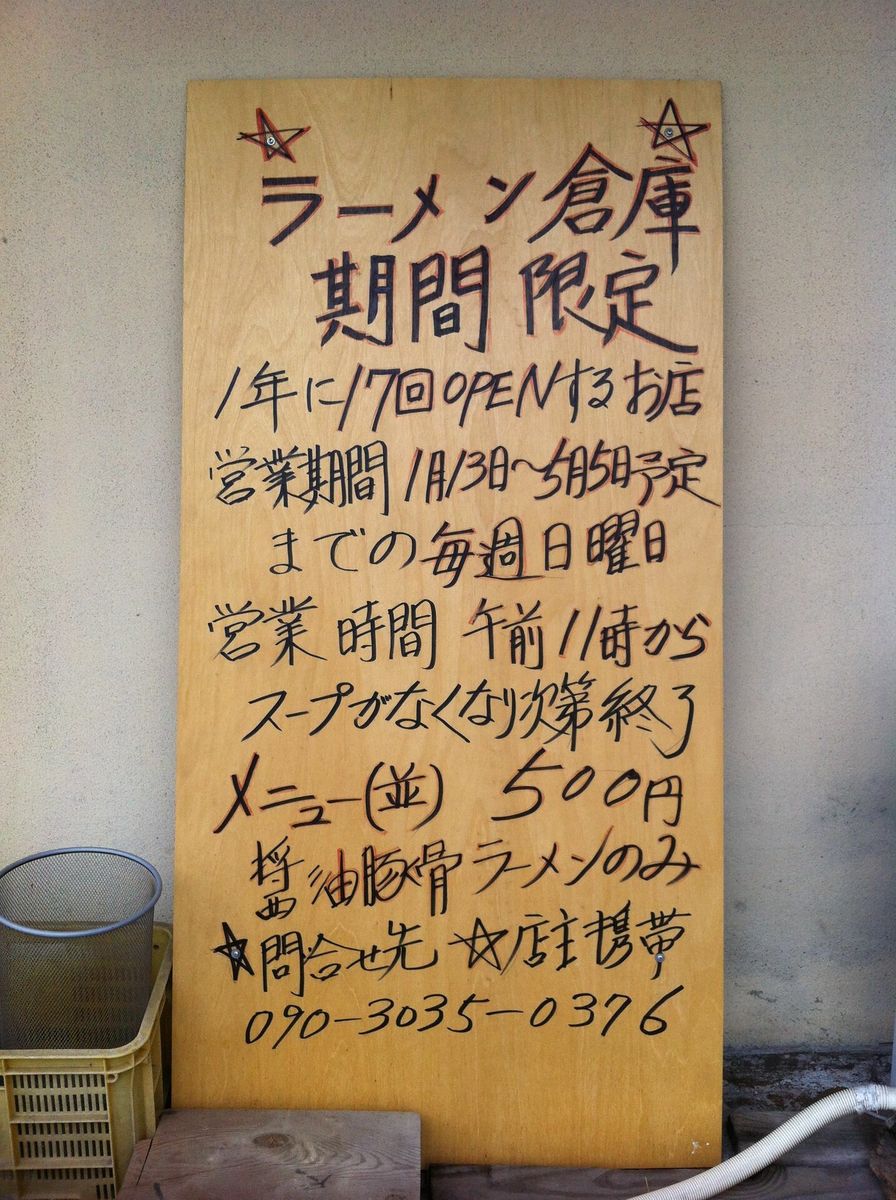 ☆ ☆
ラーメン倉庫
期間限定
1年に17回OPENするお店
営業期間 1月13日〜5月5日予定
までの毎週日曜日
営業時間 午前11時から
スープがなくなり次第終了
メニュー(並) 500円
醤油豚骨ラーメンのみ
☆問合せ先 ☆店主携帯
090-3035-0376